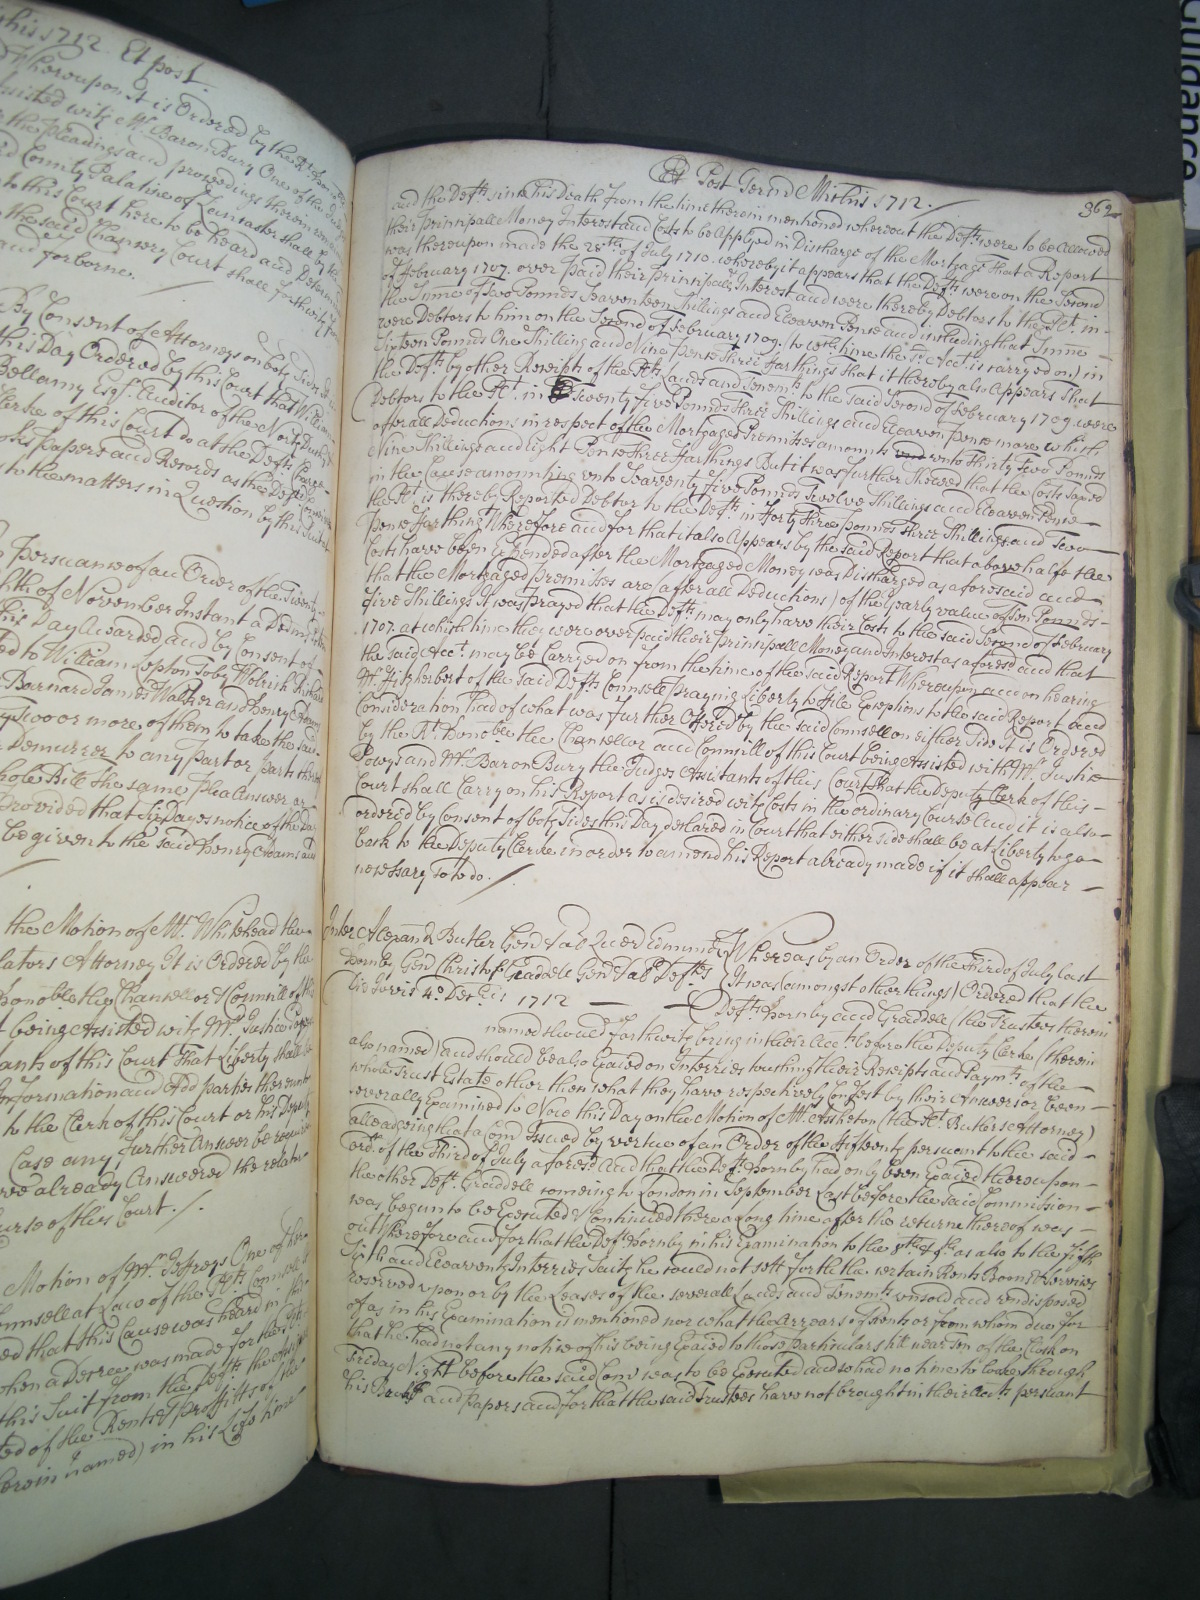 his 1712. Et post.
Whereupon It is Ordered by the Rt. Honoble
Assisted with Mr. Baron Bury One of the Judges
the pleadings and proceedings therein
County Palatine of Lancaster shall by
to this Court here to be heard and Determined
the said Chancery Court shall forthwith
and forborne.
By Consent of Attorneys on both Sides
this Day Ordered by this Court that William
Bellamy Esqr. Auditor of the North
Clerke of this Court do at the Defts. Charge
his papers and Records as the Deft.
to the matters in Question by this
Persuance of an Order of the Twenty
hth of November Instant a Dedimus
this Day Awarded and by Consent of
ed to William Lepton Toby Wolrich Richard
Barnard James Walker and Henry Adams
two or more of them to take the said
Demurrer to any part or parts thereof
hole Bill the same plea Answer or
Provided that Six Dayes notice of the Day
be given to the said Henry Adams and
the Motion of Mr. Whitehead the
lators Attorney It is Ordered by the
honoble the Chancellor & Councill of this
being Assisted with Mr. Justice Powys
ants of this Court That Liberty shall be
Information and Add parties thereunto
to the Clerk of this Court or his Deputy
Case any further Answer be required
ve already Answered the relators
urse of this Court.
Motion of Mr. Jeffreys One of the
unsell at Law of the Plts. Counsell
ed that this Cause was heard in
when a Decree was made for the
this Suit from the Deft. the
ted of the Rents & proffitts of the
herein named) in his Life time
Et Post Termd Michis 1712.
362
and the Defts. since his Death from the time therein menconed whereout the Defts. were to be allowed
their Principall Money Interest and Costs to be Applyed in Discharge of the Mortgage That a Report
was thereupon made the 28th. of July 1710. whereby it appears that the Defts. were on the Second
of February 1707. over paid their Principall & Interest and were thereby Debtors to the Plt. in
the Summe of Two Pounds Seaventeen Shillings and Eleaven Pence and including that Summe
were Debtors to him on the Second of February 1709. (to wch. time the sd. Acct. is carryed on) in
Sixteen Pounds One Shilling and Nine Pence Three Farthings that it thereby also Appears That
the Defts. by other Receipts of the Plts. Lands and Tenemts. to the said Second of February 1709. were
Debtors to the Plt. in Twenty five Pounds Three Shillings and Eleaven Pence more which
after all Deductions in respect of the Mortgaged Premisses amounts unto Thirty Two Pounds
Nine Shillings and Eight Pence Three Farthings But it was further Shewed that the Costs Taxed
in the Cause amounting unto Seaventy five Pounds Twelve Shillings and Eleaven Pence
the Plt. is thereby Reported Debtor to the Deft. in Forty Three Pounds Three Shillings and Two
Pence Farthing Wherefore and for that it also Appears by the said Report that above halfe the
Costs have been Expended after the Mortgaged Money was Discharged as aforesaid and
that the Mortgaged Premisses are (after all Deductions) of the yearly value of Ten Pounds
five Shillings It was Prayed that the Defts. may only have their Costs to the said Second of February
1707. at which time they were over paid their Principall Money and Interest as aforesd. and that
the said Acct. may be Carryed on from the time of the said Report Whereupon and on hearing
Mr. Fitzherbert of the said Defts. Counsell praying Liberty to File Exceptions to the said Report and
Consideration had of what was further Offered by the said Counsell on either Side It is Ordered
by the Rt. Honoble the Chancellor and Councill of this Court being Assisted with Mr. Justice
Powys and Mr. Baron Bury the Judges Assistants of this Court That the Deputy Clerk of this
Court shall Carry on his Report as is desired with Costs in the ordinary Course And it is also
ordered by Consent of both Sides this Day declared in Court that either side shall be at Liberty to go
back to the Deputy Clerke in order to amend his Report already made if it shall appear
necessary so to do.
Inter Alexandr Butler Gen Plt Quer Edmund
Hornby Gen Christofr. Graddell Gen & al Defts.
Die Jovis 4o. Decris 1712
Whereas by an Order of the Third of July last
It was (amongst other things) Ordered that the
Defts. Hornby and Graddell (the Trustees therein
named should forthwith bring in their Accts. before the Deputy Clerke (therein
also named) and should be also Exaied on Interries touching their Receipts and Paymts. of the
whole Trust Estate other then what they have respectively Confest by their Answers or been
severally Examined to Now this Day on the Motion of Mr. Assheton (the Plt. Butlers Attorney)
alleadgeing that a Com Issued by vertue of an Order of the Fifteenth persuant to the said
ordr. of the Third of July aforesd. And that the Deft. Hornby had only been Exaied thereupon
the other Deft. Graddell comeing to London in September Last before the said Commission
was begun to be Executed & Continued there a Long time after the returne thereof was
out Wherefore and for that the Deft. Hornby in his Examination to the 4th. & 5th. as also to the Fifth
Sixth and Eleaventh Interries Saith he could not sett forth the certain Rents Boons & Services
Reserved upon or by the Leases of the severall Lands and Tenemts. unsold and undisposed
of as in his Examination is mentioned nor what the Arrears of Rents or from whom due for
that he had not any notice of his being Exaied to those Particulars till near Ten of the Clock on
Friday Night before the said Com was to be Executed and so had no time to looke through
his Books and Papers and for that the said Trustees have not brought in their Accts. persuant
Guidance